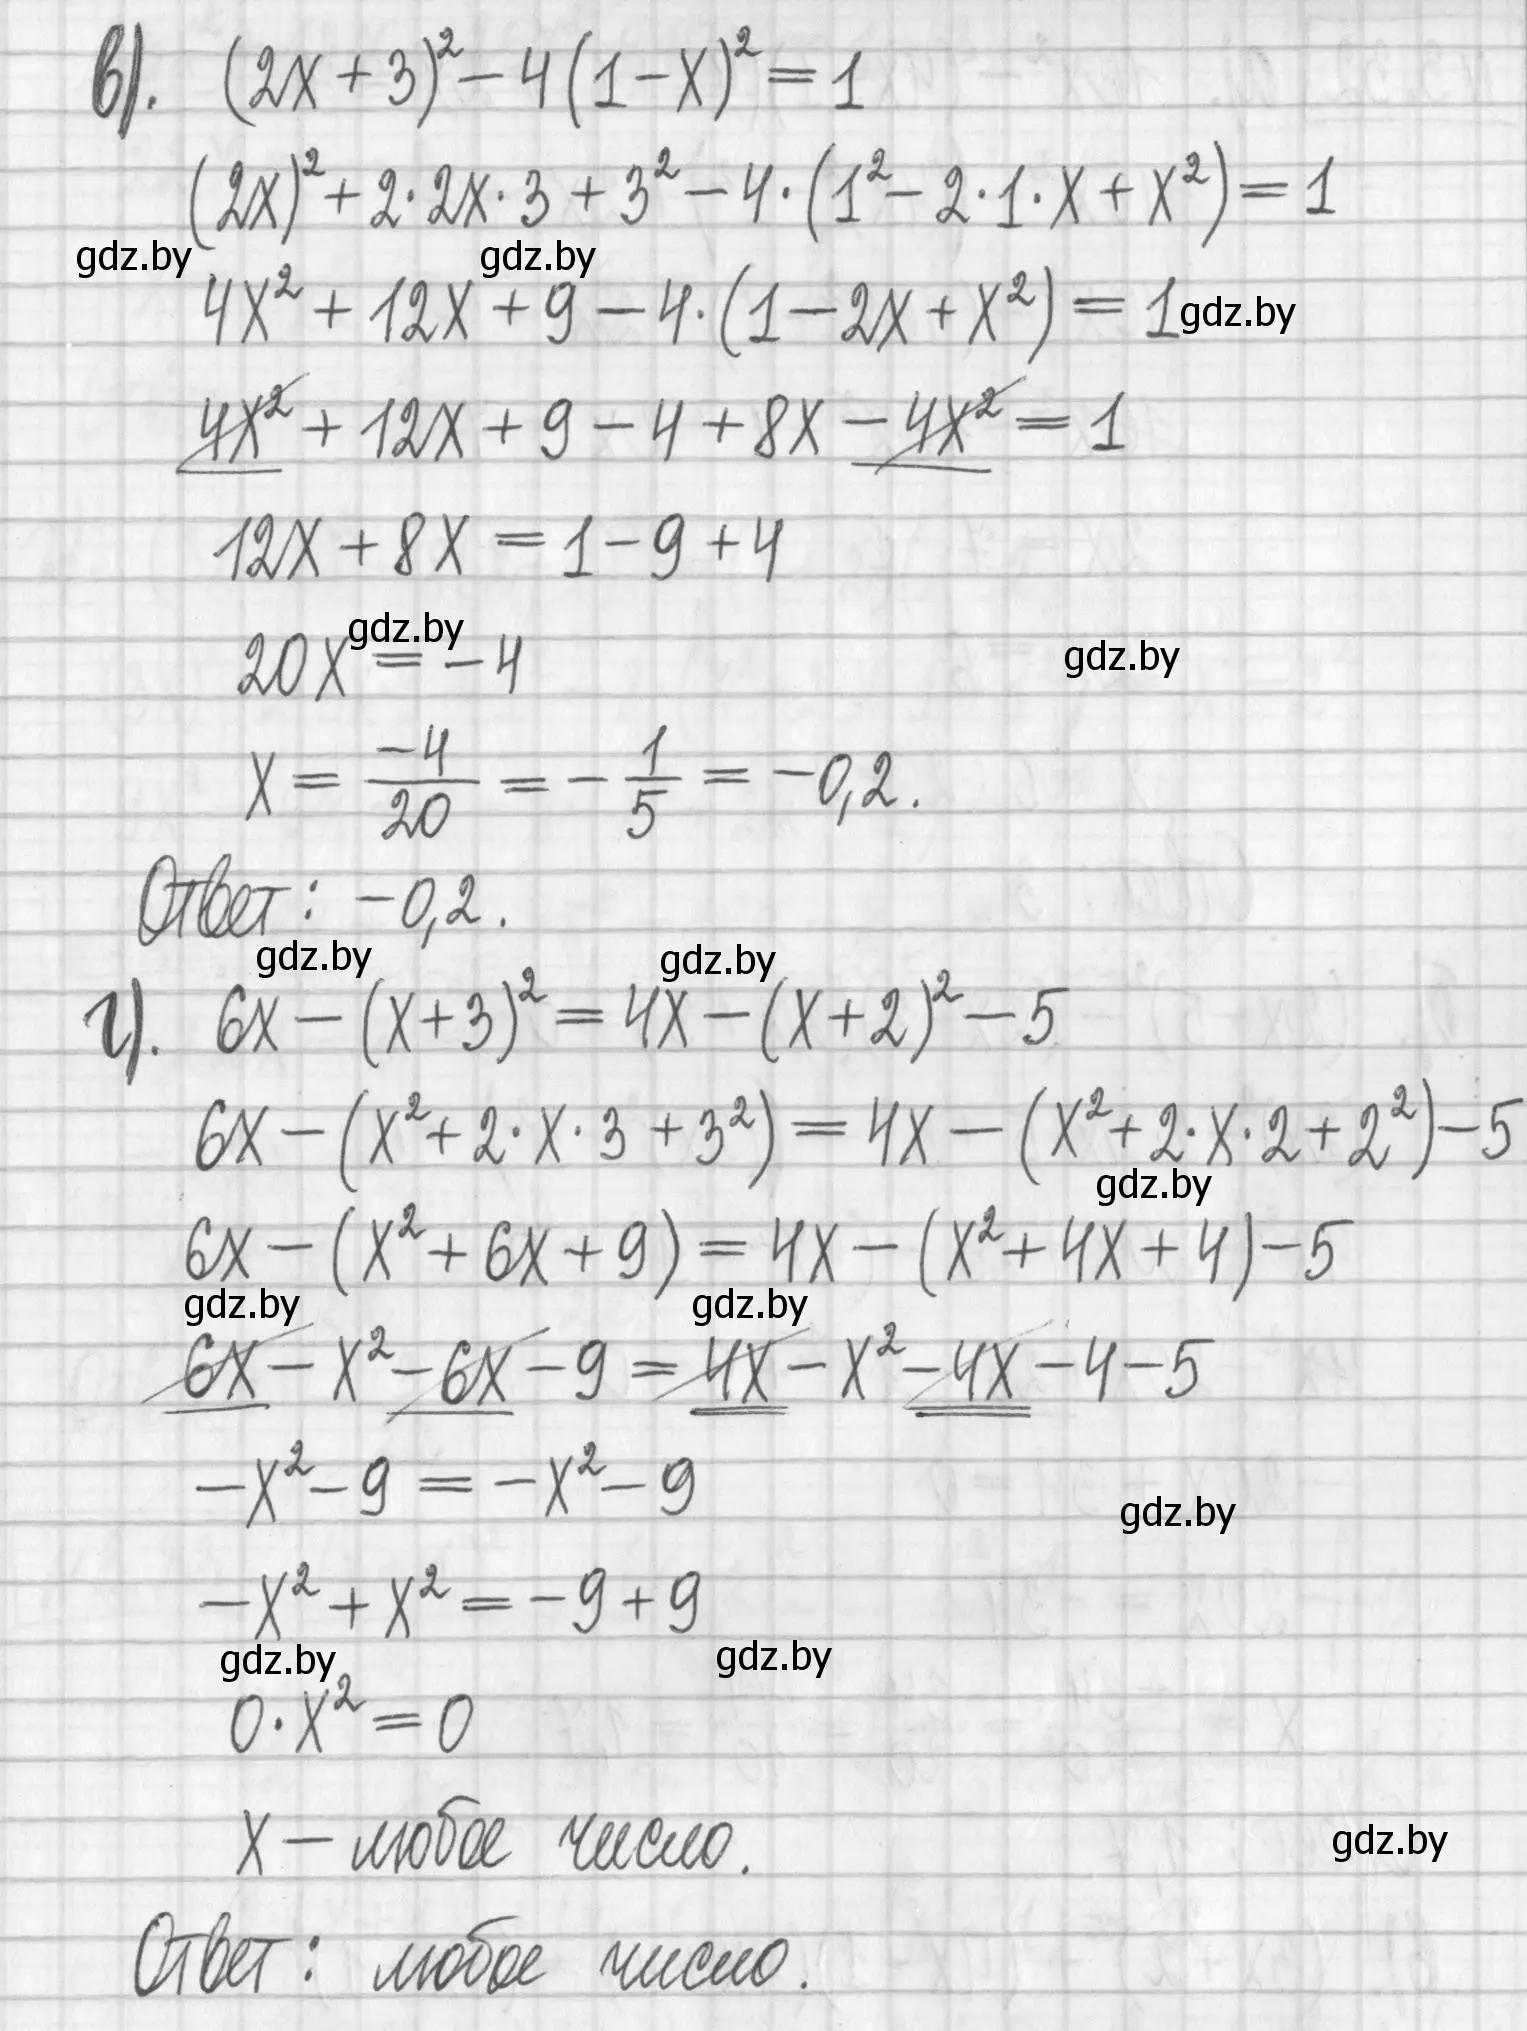 в). (2x + 3)² − 4(1 − x)² = 1
(2x)² + 2·2x·3 + 3² − 4·(1² − 2·1·x + x²) = 1
gdz.by gdz.by
4x² + 12x + 9 − 4·(1 − 2x + x²) = 1 gdz.by
4x² + 12x + 9 − 4 + 8x − 4x² = 1
12x + 8x = 1 − 9 + 4
gdz.by gdz.by
20x = −4
x = −4/20 = −1/5 = −0,2.
Ответ: −0,2.
gdz.by gdz.by
г). 6x − (x + 3)² = 4x − (x + 2)² − 5
6x − (x² + 2·x·3 + 3²) = 4x − (x² + 2·x·2 + 2²) − 5
gdz.by
6x − (x² + 6x + 9) = 4x − (x² + 4x + 4) − 5
gdz.by gdz.by
6x − x² − 6x − 9 = 4x − x² − 4x − 4 − 5
−x² − 9 = −x² − 9
gdz.by
−x² + x² = −9 + 9
gdz.by gdz.by
0·x² = 0
x − любое число.
gdz.by
Ответ: любое число.